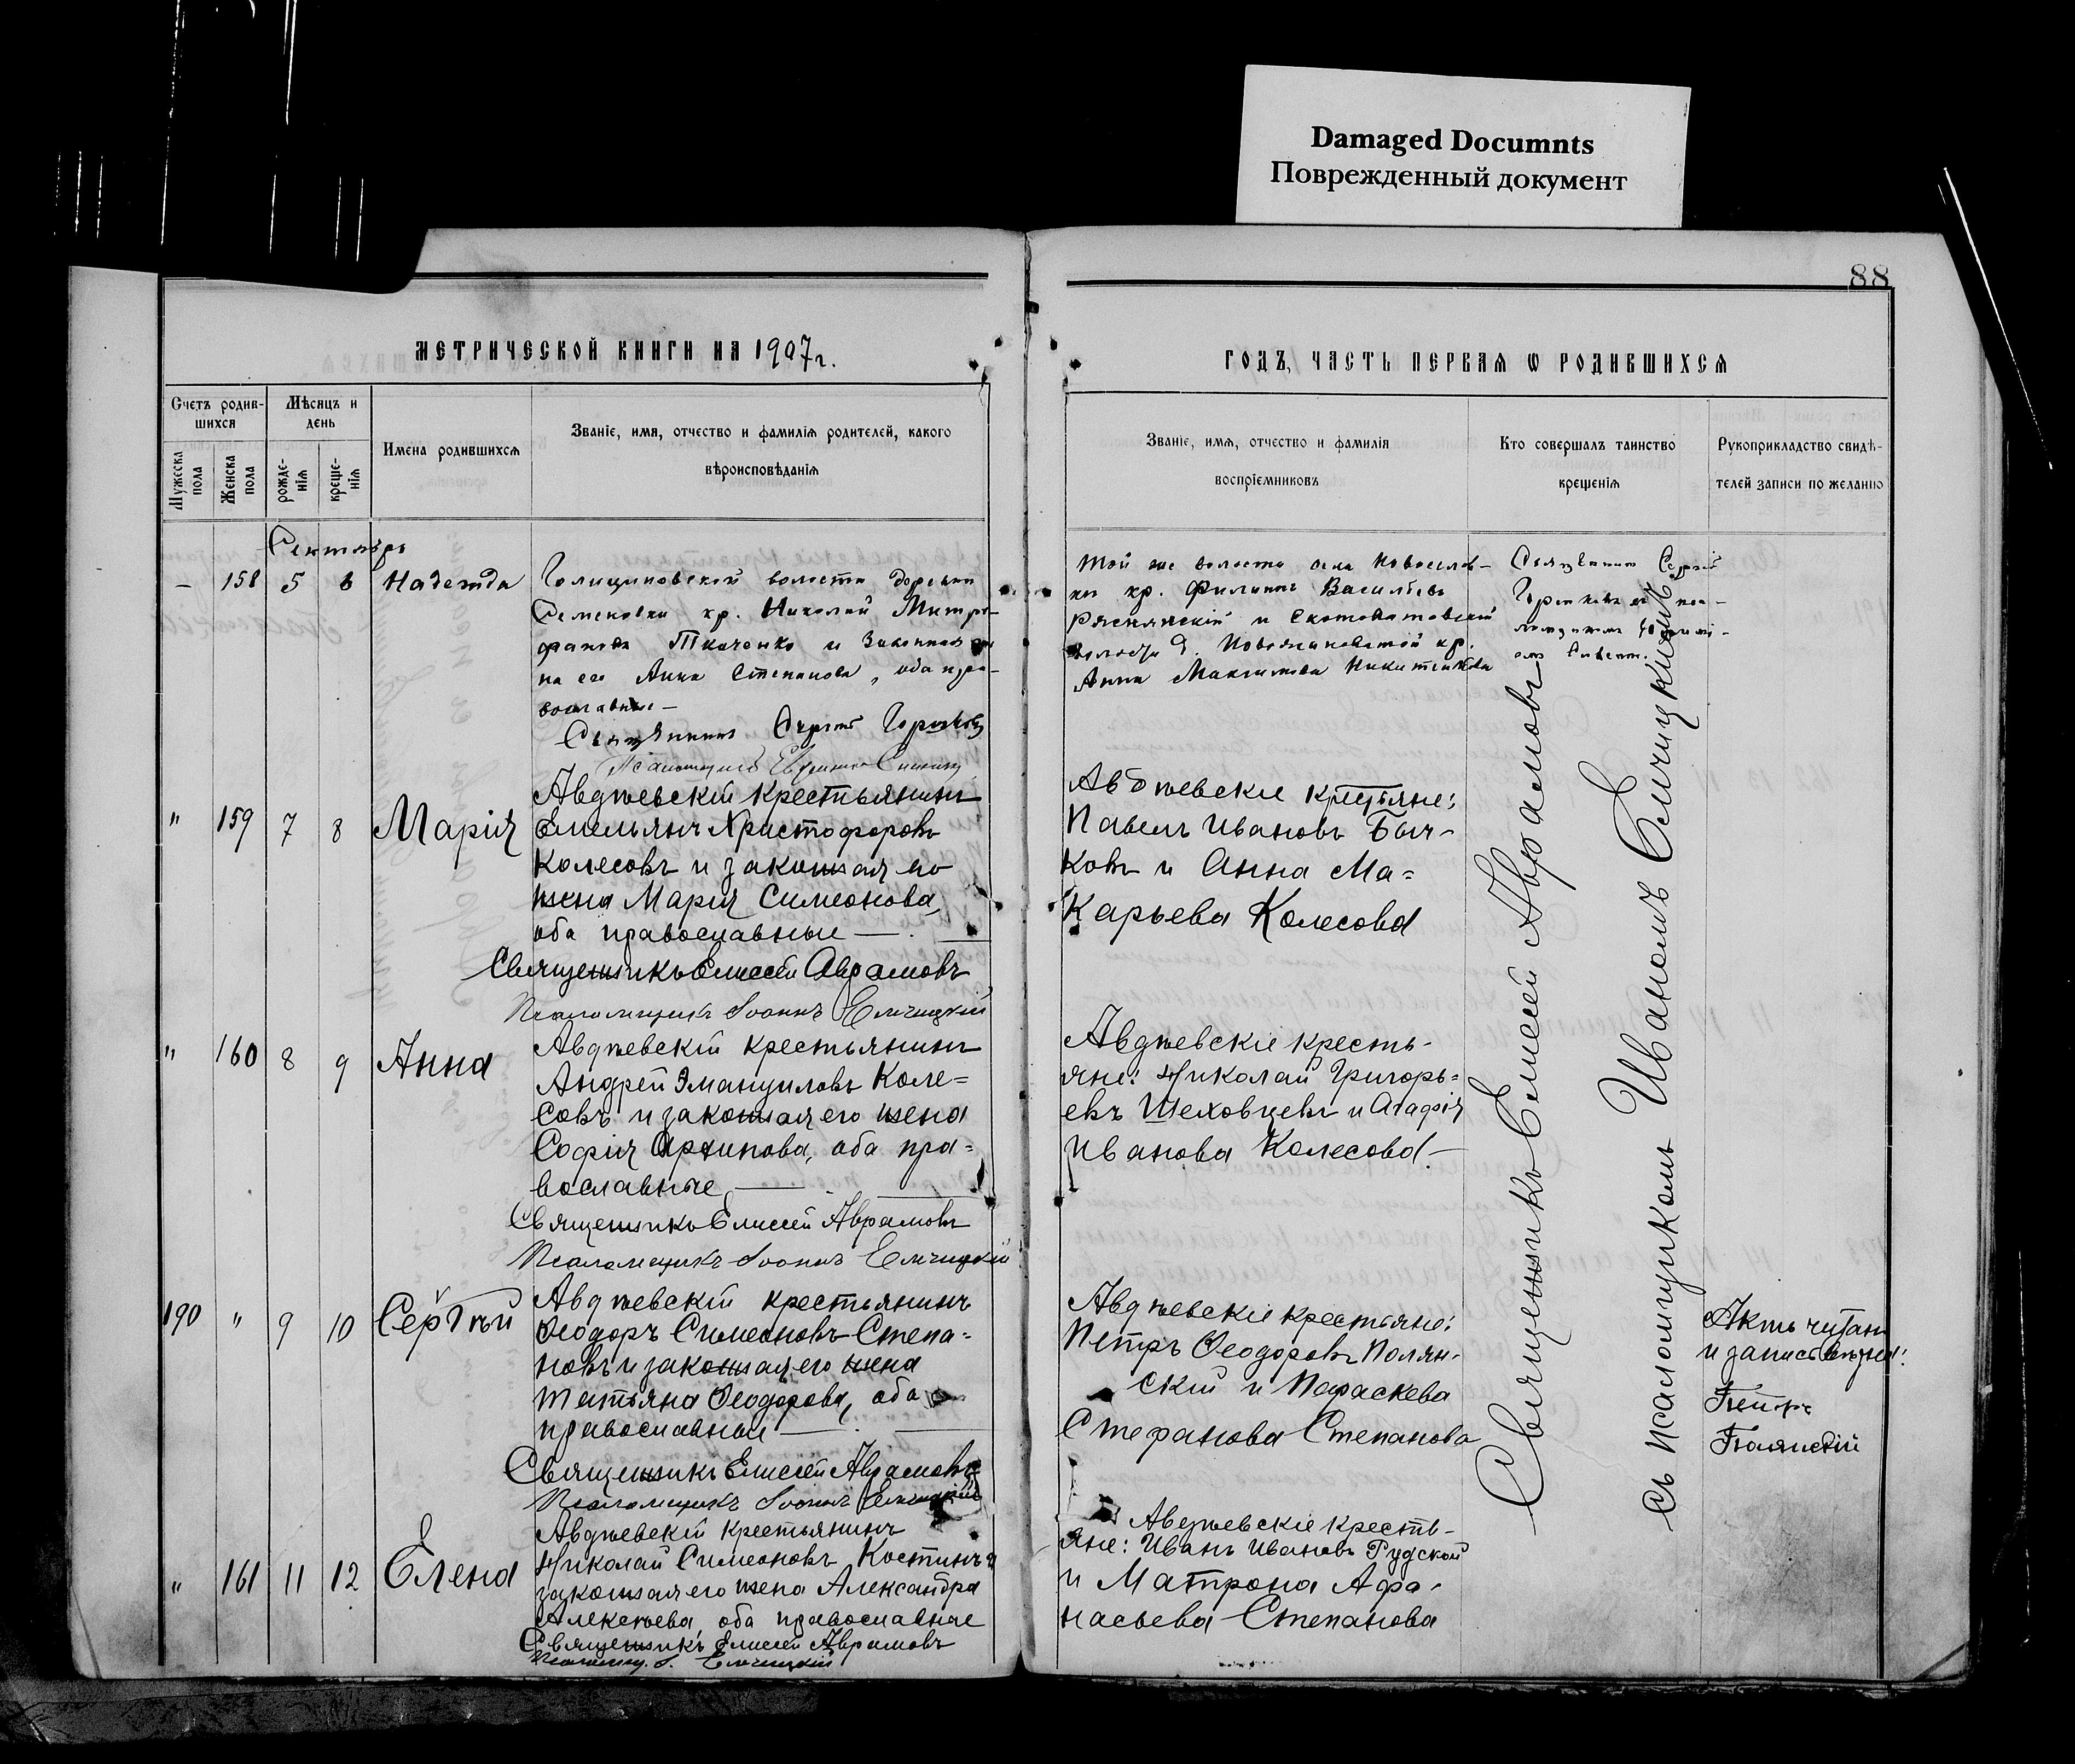 Damaged Documnts
Поврежденный документ
88
МЕТРИЧЕСКОЙ КНИГИ НА 1907г.
ГОДЪ, ЧАСТЬ ПЕРВАЯ Ѡ РОДИВШИХСЯ
Счетъ родив-
шихся
Мужеска
пола
Женска
пола
Мѣсяцъ и
день
рожде-
нія
креще-
нія
Имена родившихся
Званіе, имя, отчество и фамилія родителей, какого
вѣроисповѣданія
Званіе, имя, отчество и фамилія
воспріемниковъ
Кто совершалъ таинство
крещенія
Рукоприкладство свидѣ-
телей записи по желанію
Сентябрь
– 158 5 6 Надежда
Голициновской волости деревни
Семеновки кр. Николай Митро-
фановъ Ткаченко и законная же-
на его Анна Степанова, оба пра-
вославные –
Священникъ Сергій
Псаломщикъ
той же волости села
кр. Филиппъ Васильевъ
и Скотоватовской
волости д. кр.
Анна Максимова
Священникъ Сергій
" 159 7 8 Марія
Авдѣевскій крестьянинъ
Емельянъ Христофоровъ
Колесовъ и законная его
жена Марія Симеонова,
оба православные —
Священникъ Елисей Аврамовъ
Псаломщикъ Іоаннъ Ельчицкій
Авдѣевскіе крестьяне:
Павелъ Ивановъ Быч-
ковъ и Анна Ма-
карьева Колесова
" 160 8 9 Анна
Авдѣевскій крестьянинъ
Андрей Эмануиловъ Коле-
совъ и законная его жена
Софія Архипова, оба пра-
вославные —
Священникъ Елисей Аврамовъ
Псаломщикъ Іоаннъ Ельчицкій
Авдѣевскіе кресть-
яне: Николай Григорь-
евъ Шеховцевъ и Агафія
Иванова Колесова. –
190 " 9 10 Сергѣй
Авдѣевскій крестьянинъ
Ѳеодоръ Симеоновъ Степа-
новъ и законная его жена
Татьяна Ѳеодорова, оба
православные —
Священникъ Елисей Аврамовъ
Псаломщикъ Іоаннъ Ельчицкій
Авдѣевскіе крестьяне:
Петръ Ѳеодоровъ Полян-
скій и Параскева
Стефанова Степанова
Актъ читанъ
и запись вѣрна:
Петръ
Полянскій
" 161 11 12 Елена
Авдѣевскій крестьянинъ
Николай Симеоновъ Костинъ и
законная его жена Александра
Алексѣева, оба православные
Священникъ Елисей Аврамовъ
Псаломщ. І. Ельчицкій
Авдѣевскіе кресть-
яне: Иванъ Ивановъ Рудской
и Матрона Афа-
насьева Степанова
Священникъ Елисей Аврамовъ
съ псаломщикомъ Иваномъ Ельчицкимъ